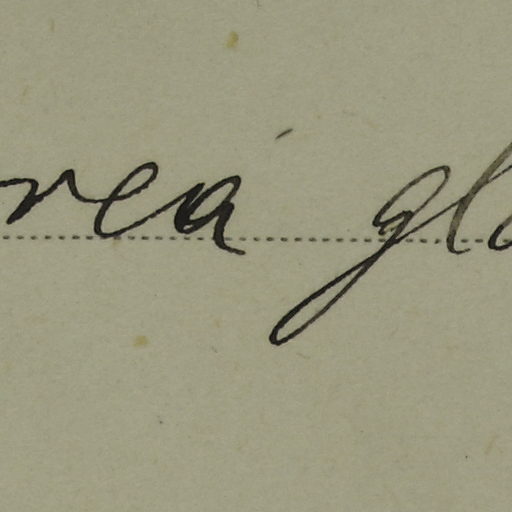 rea gla